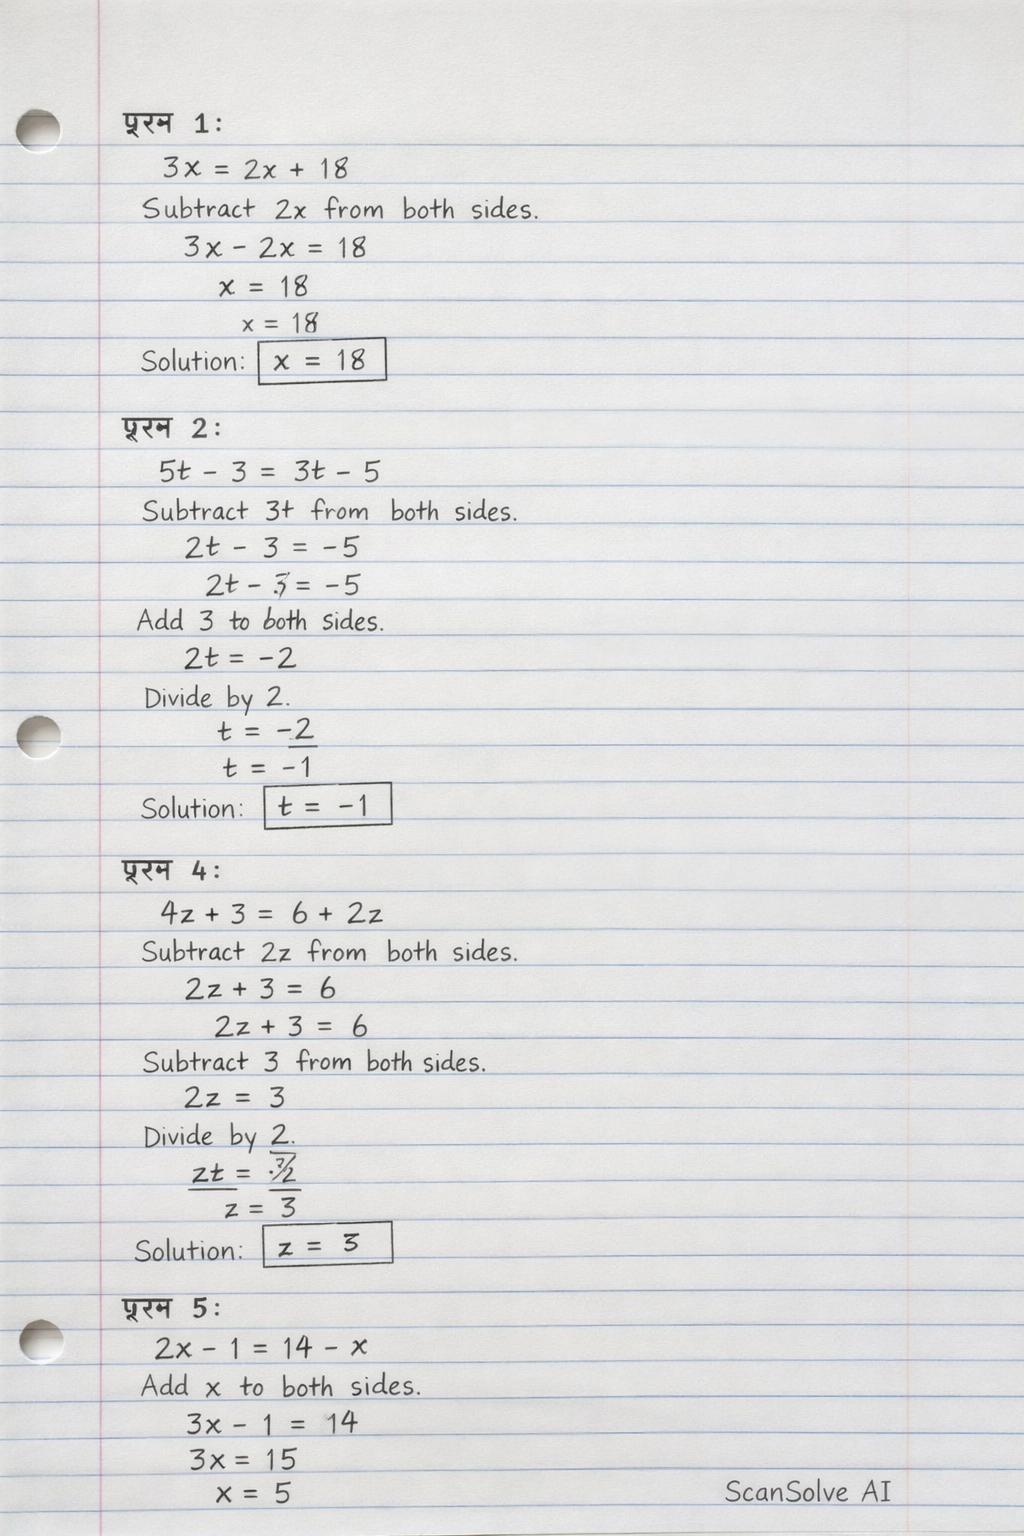 प्रश्न 1:
3x = 2x + 18
Subtract 2x from both sides.
3x - 2x = 18
x = 18
x = 18
Solution: x = 18
प्रश्न 2:
5t - 3 = 3t - 5
Subtract 3t from both sides.
2t - 3 = -5
2t - 3 = -5
Add 3 to both sides.
2t = -2
Divide by 2.
t = -2
t = -1
Solution: t = -1
प्रश्न 4:
4z + 3 = 6 + 2z
Subtract 2z from both sides.
2z + 3 = 6
2z + 3 = 6
Subtract 3 from both sides.
2z = 3
Divide by 2.
zt =
z = 3
Solution: z = 3
प्रश्न 5:
2x - 1 = 14 - x
Add x to both sides.
3x - 1 = 14
3x = 15
x = 5
ScanSolve AI